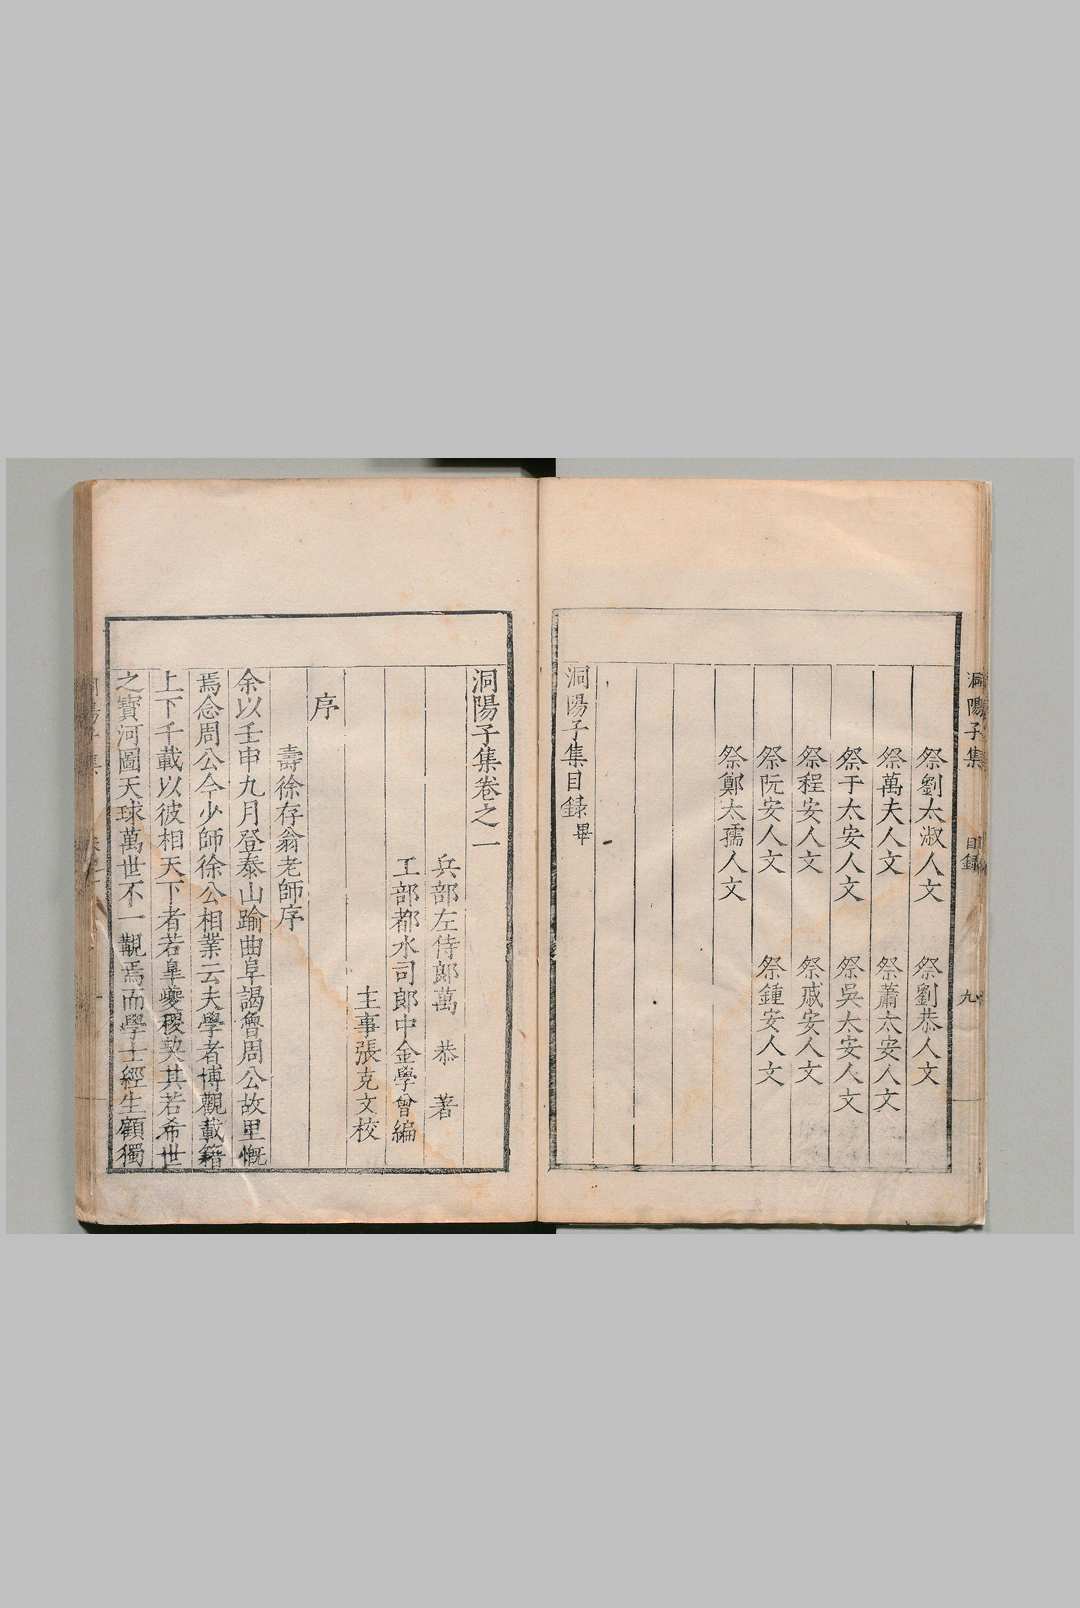 洞陽子集
目録
九
祭劉太淑人文 祭劉恭人文
祭萬夫人文 祭蕭太安人文
祭于太安人文 祭吳太安人文
祭程安人文 祭戚安人文
祭阮安人文 祭鍾安人文
祭鄭太孺人文
洞陽子集目録畢
洞陽子集卷之一
兵部左侍郎萬 恭 著
工部都水司郎中金學曾編
主事張克文校
序
壽徐存翁老師序
余以壬申九月登泰山踰曲阜謁魯周公故里慨
焉念周公今少師徐公相業云夫學者博觀載籍
上下千載以彼相天下者若臯夔稷契其若希世
之寶河圖天球萬世不一覩焉而學士經生顧獨